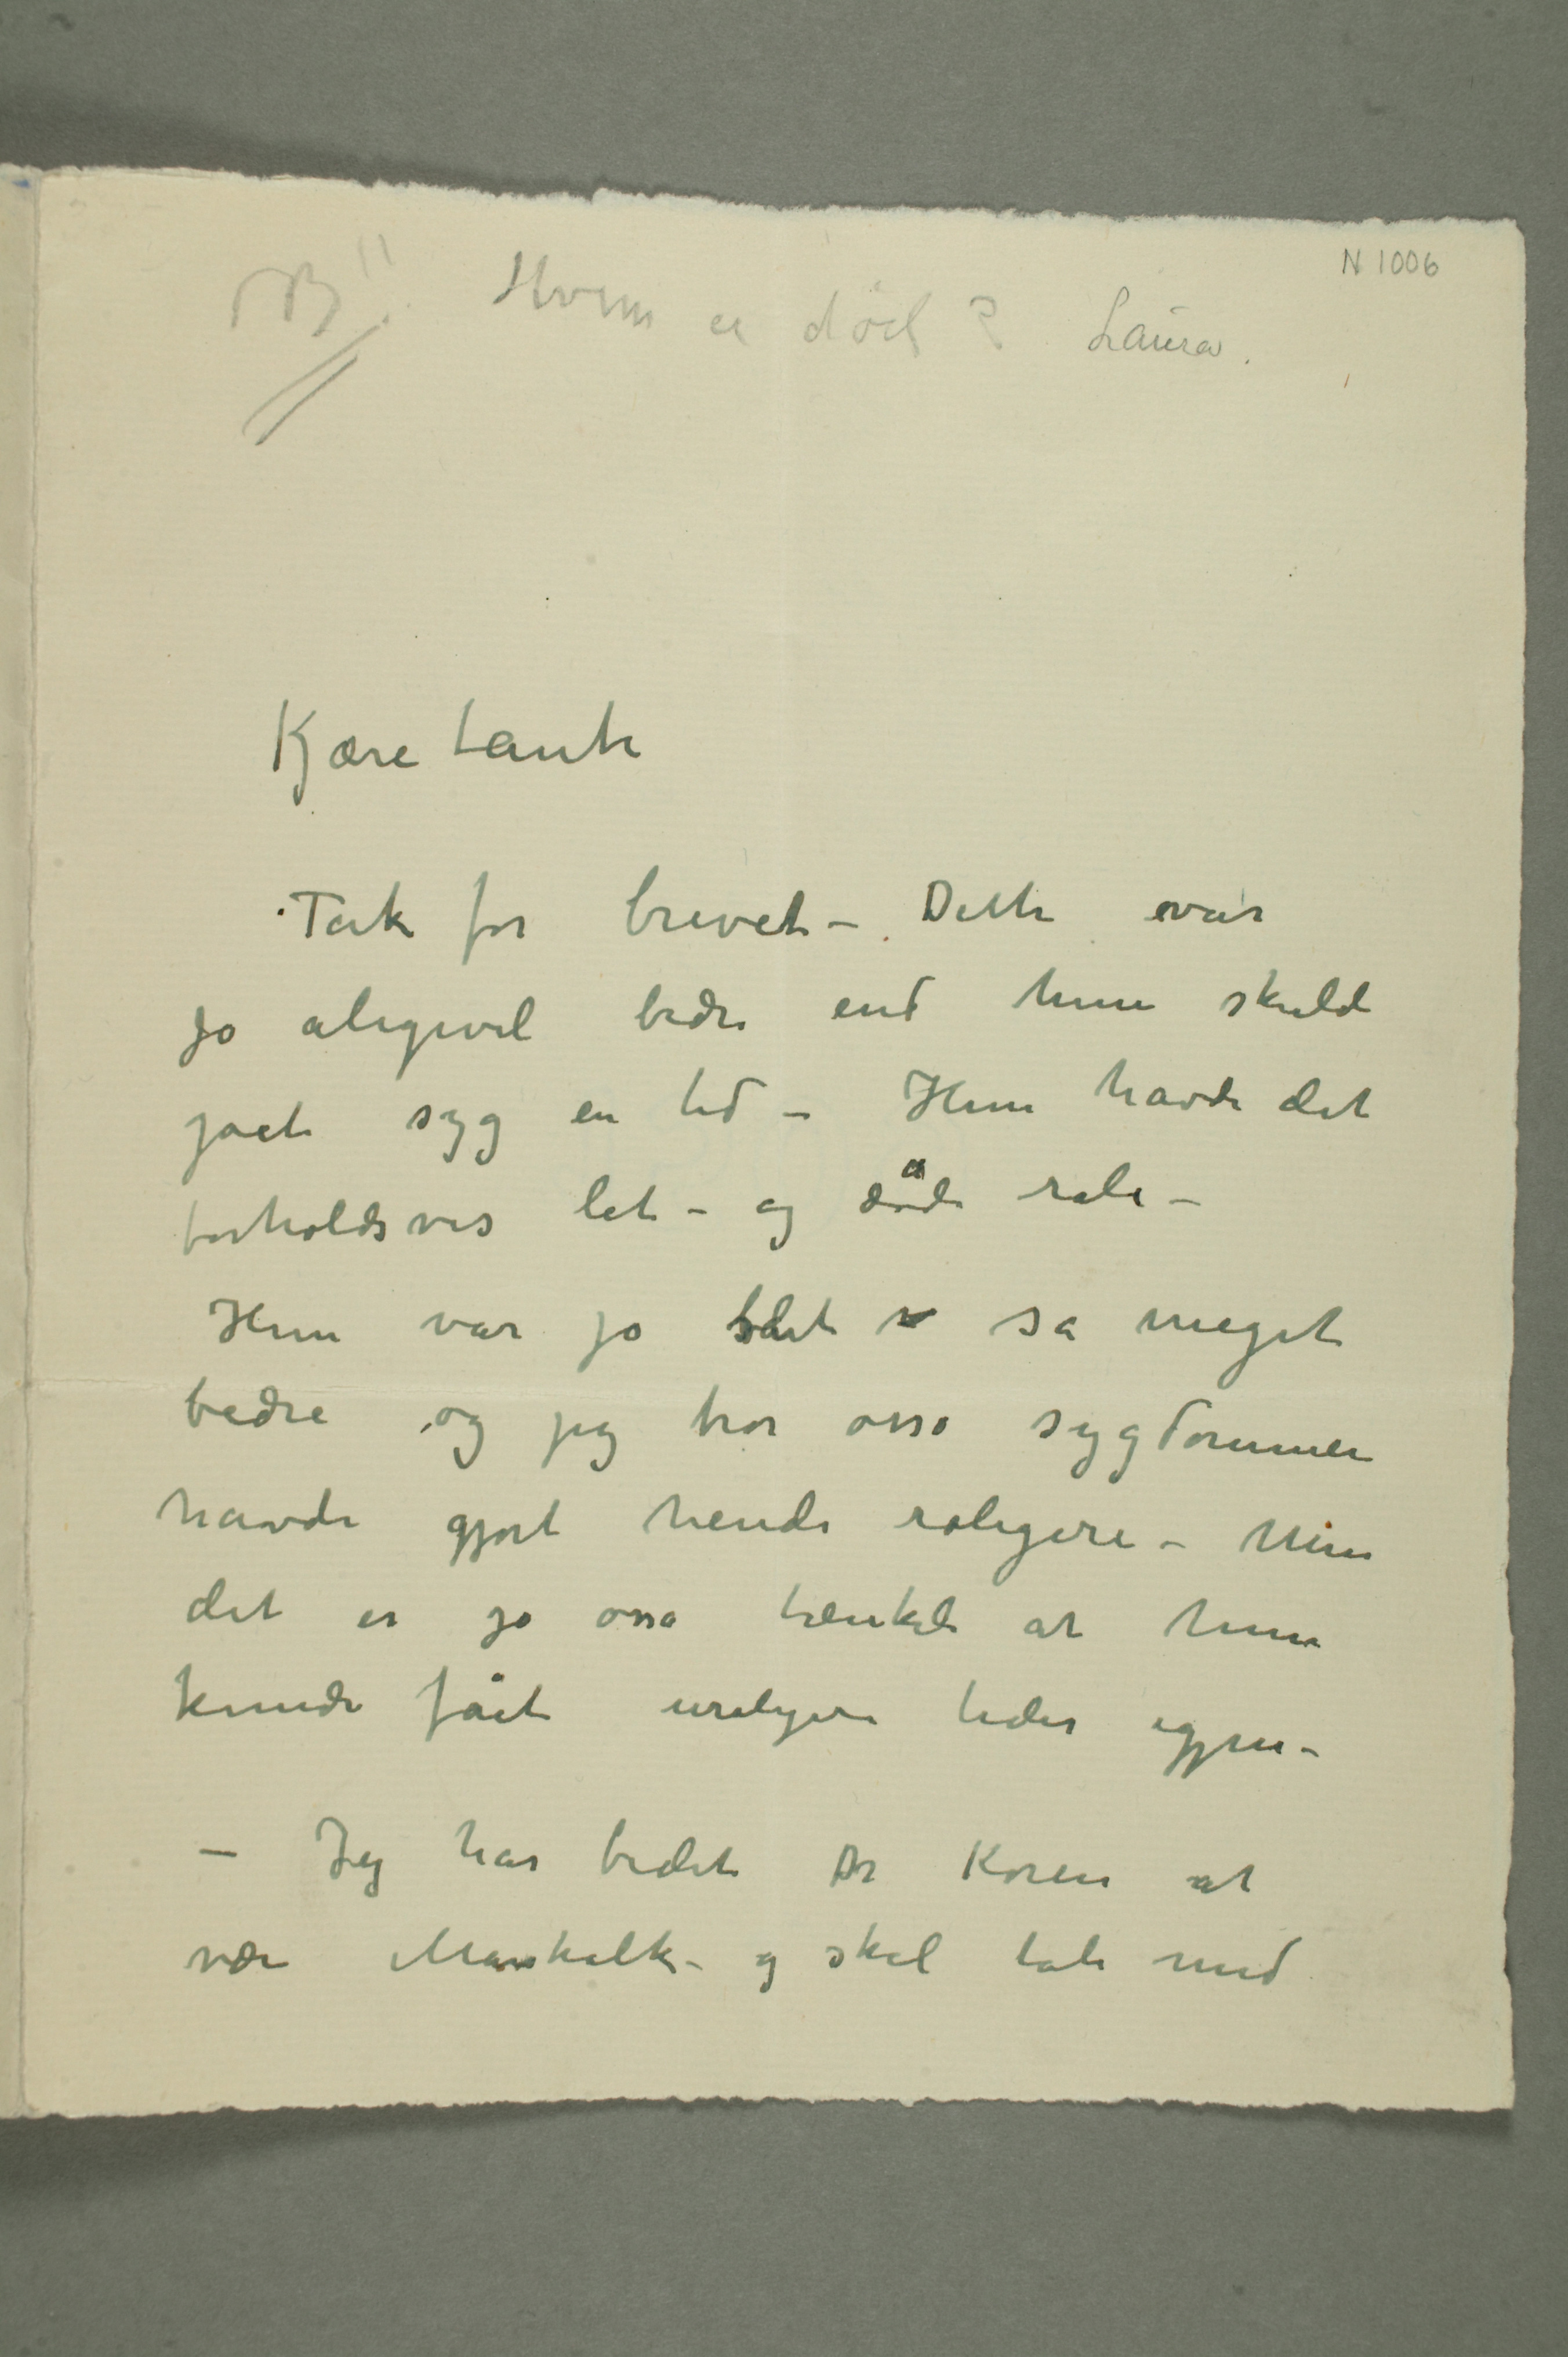 N 1006
NB!! Hvem er død? Laura.
Kjære tante
Tak for brevet – Dette var
jo aligevel bedre end hun skulde
gaet syg en tid – Hun havde det
forholdsvis let – og døde role –
Hun var jo blet så meget
bedre og jeg tror osså sygdommen
havde gjort hende roligere – Men
det er jo ossa tænkeli at hun
kunde fåt uroligere tider igjen –
– Jeg har bedet Dr Koren at
være Marskalk – og skal tale med